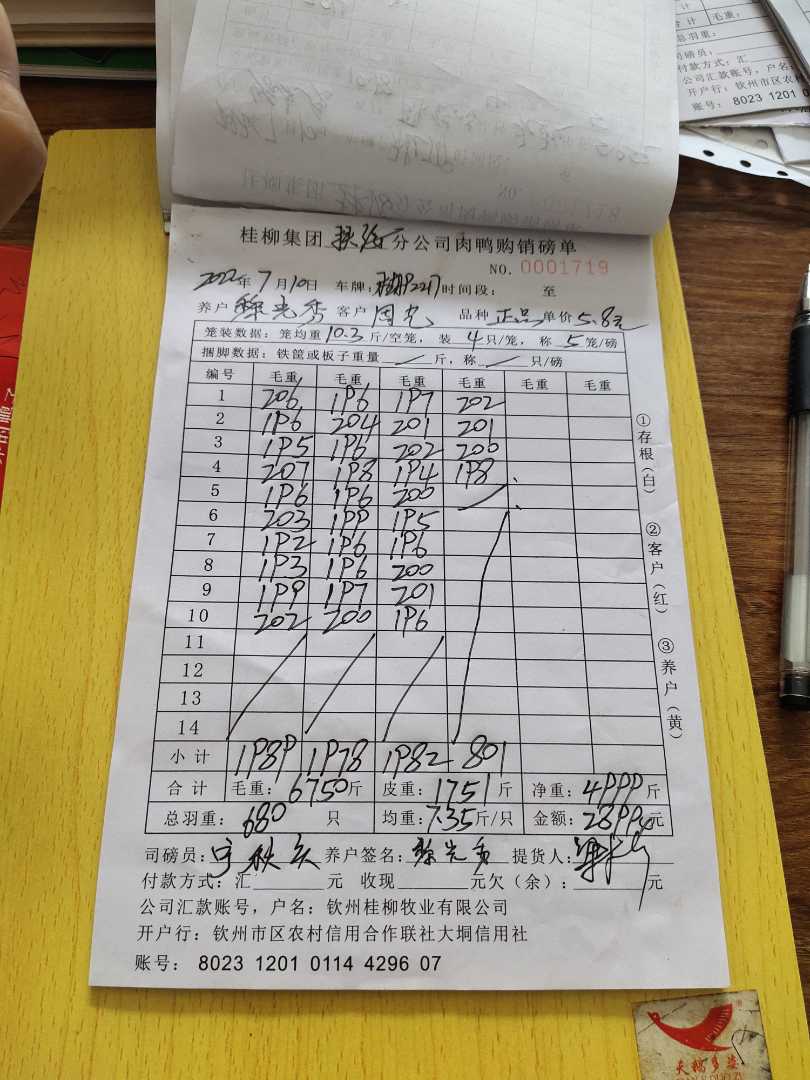 公司汇款账号，户名
开户行：钦州市区农
账号： 8023 1201 0
付款方式：汇
司磅员：
总羽重：
毛重：
桂柳集团扶绥分公司肉鸭购销磅单
NO. 0001719
2022年7月10日 车牌：桂P2217 时间段： 至
养户 客户 周光 品种 正品 单价 5.8元
笼装数据：笼均重 10.3 斤/空笼， 装 4 只/笼， 称 5 笼/磅
捆脚数据：铁筐或板子重量 / 斤，称 / 只/磅
编号 毛重 毛重 毛重 毛重 毛重 毛重
1 206 196 197 202
2 196 204 201 201
3 195 196 202 200
4 207 198 194 198
5 196 196 200
6 203 199 195
7 192 196 196
8 193 196 200
9 199 197 201
10 202 200 196
11
12
13
14
小计 1989 1978 1982 801
合计 毛重：6750斤 皮重：1751斤 净重：4999斤
总羽重：680 只 均重：7.35斤/只 金额：28994元
司磅员： 养户签名： 提货人：
付款方式：汇 元 收现 元欠（余）： 元
公司汇款账号，户名：钦州桂柳牧业有限公司
开户行：钦州市区农村信用合作联社大垌信用社
账号： 8023 1201 0114 4296 07
①存根（白）
②客户（红）
③养户（黄）